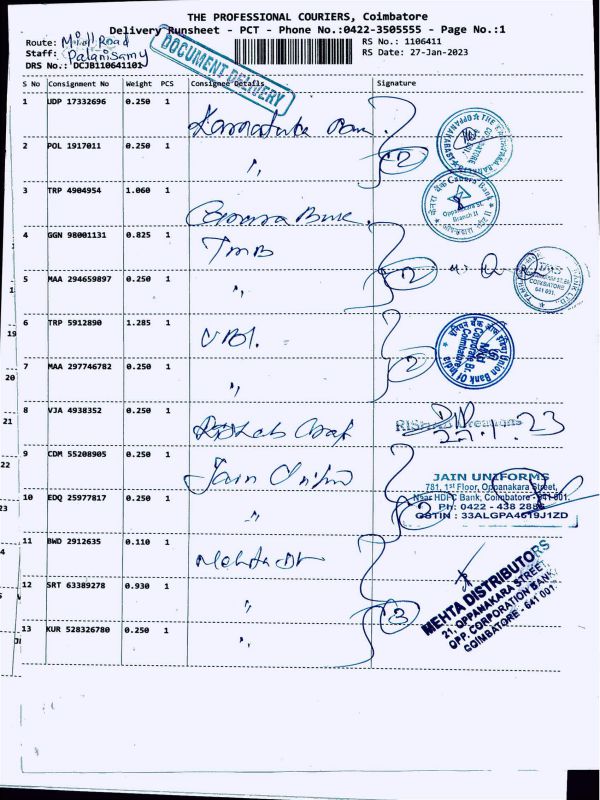 THE PROFESSIONAL COURIERS, Coimbatore
Delivery Runsheet - PCT - Phone No.:0422-3505555 - Page No.:1
Route: Mill Road
RS No.: 1106411
Staff: Palanisamy
RS Date: 27-Jan-2023
DRS No.: DCJB110641101
DOCUMENT DELIVERY
S No Consignment No Weight PCS Consignee Details Signature
1 UDP 17332696 0.250 1
2 POL 1917011 0.250 1 "
2
3 TRP 4904954 1.060 1
Canara Bank
4 GGN 98001131 0.825 1 TMB
5 MAA 294659897 0.250 1 "
2
6 TRP 5912890 1.285 1 UBI.
Union Bank Of India
Corporate Br.
Coimbatore
7 MAA 297746782 0.250 1 "
2
8 VJA 4938352 0.250 1
27.1.23
9 CDM 55208905 0.250 1 Jain Unifm
JAIN UNIFORMS
781, 1st Floor, Oppanakara Street,
10 EDQ 25977817 0.250 1 "
2
Near HDFC Bank, Coimbatore - 641 001.
Ph: 0422 - 438 288
GSTIN : 33ALGPA4619J1ZD
11 BWD 2912635 0.110 1 Mehta
12 SRT 63389278 0.930 1 "
3
13 KUR 528326780 0.250 1 "
MEHTA DISTRIBUTORS
21, OPPANAKARA STREET,
OPP. CORPORATION BANK,
COIMBATORE - 641 001.